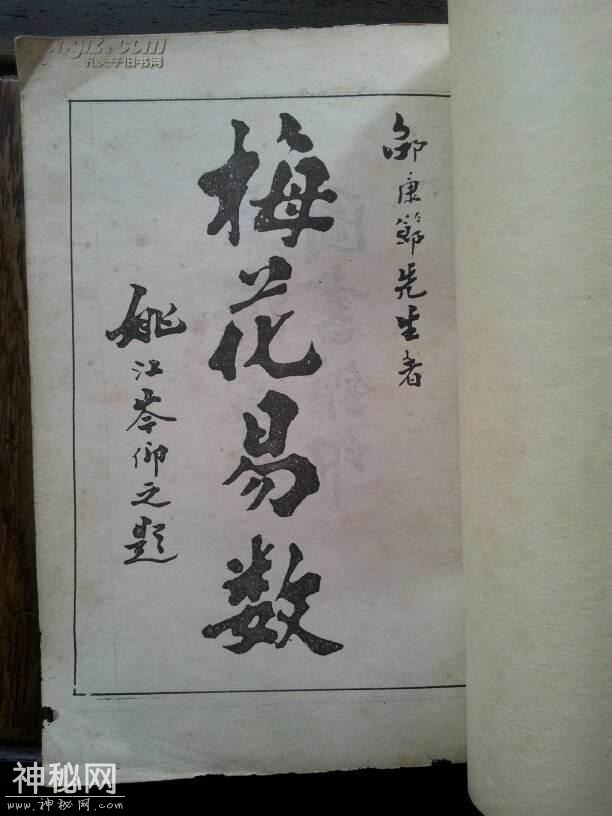 孔夫子旧书网
邵康節先生者
梅花易数
姚江岑仰之題
神秘网
www.神秘网.com